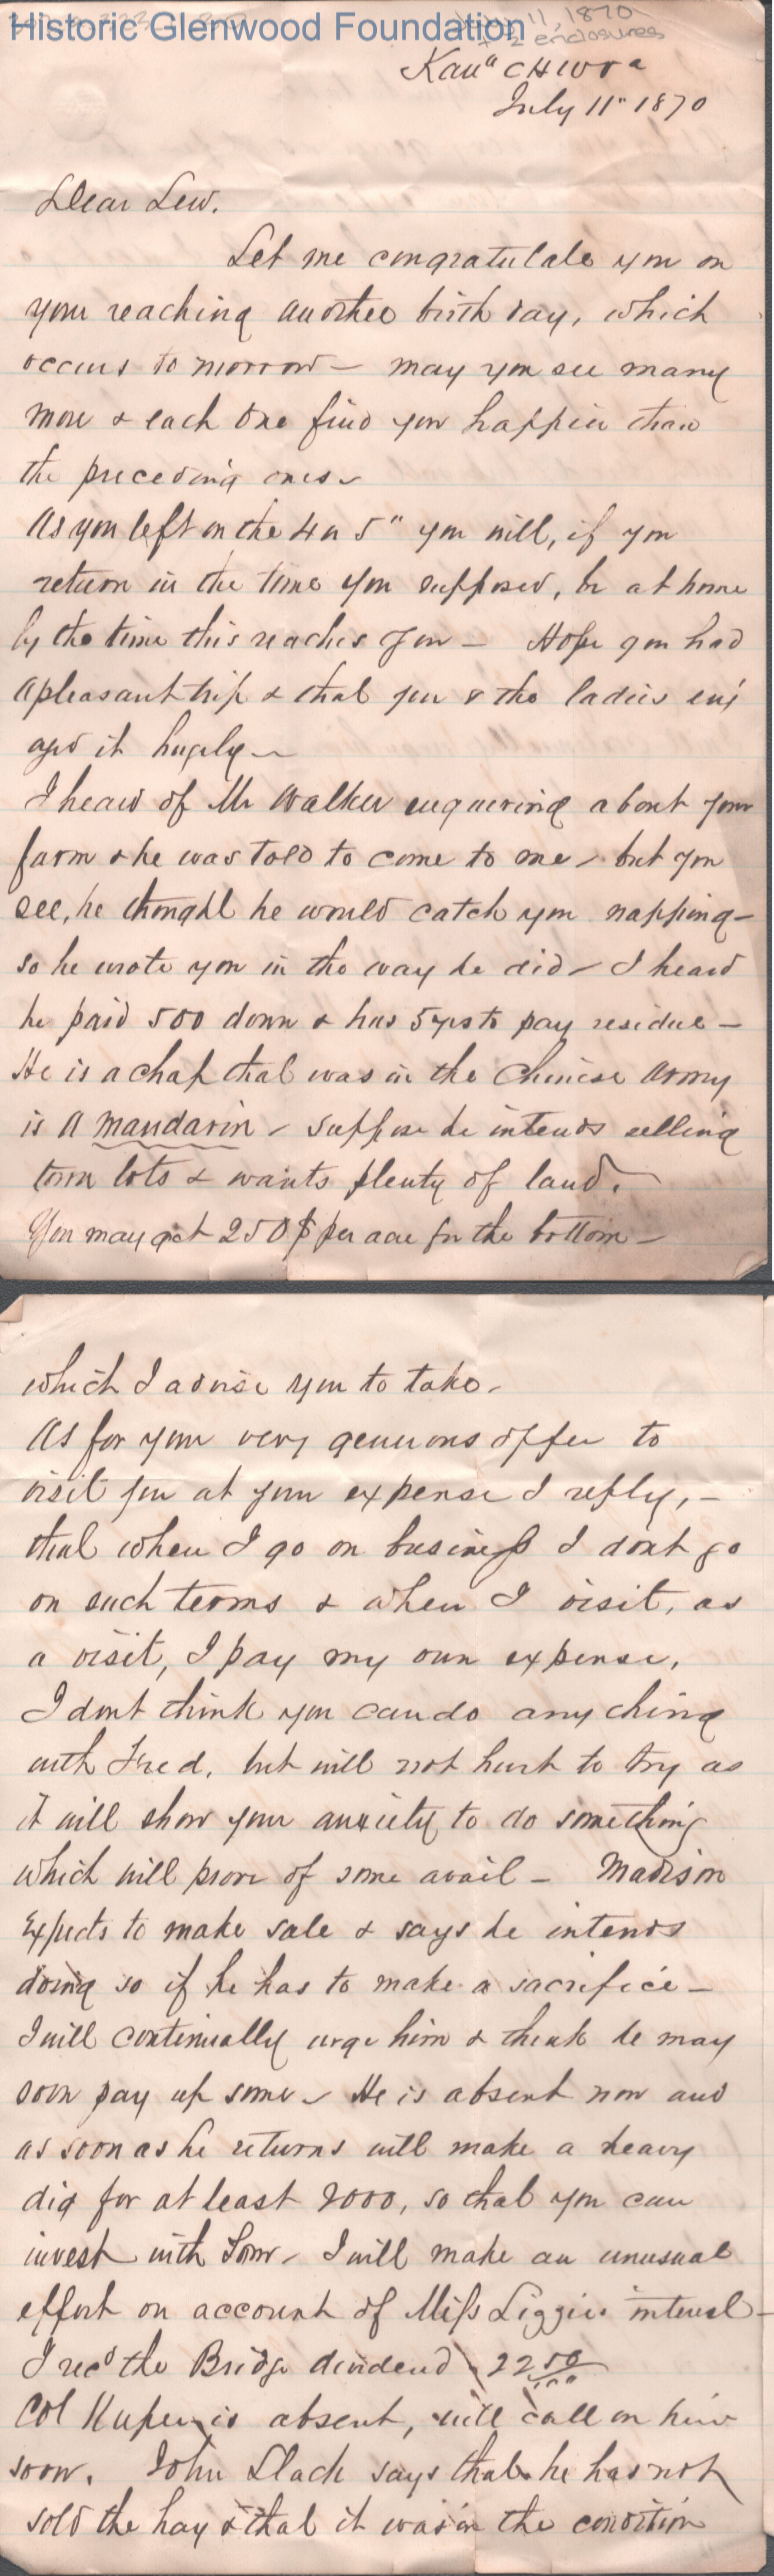 Historic Glenwood Foundation
July 11, 1870
+ 2 enclosures
Kanª C H W Va
July 11" 1870
Dear Lew.
Let me congratulate you on
your reaching another birth day, which
occurs to morrow - may you see many
more & each one find you happier than
the preceding ones -
As you left on the 4 or 5" you will, if you
return in the time you supposed, be at home
by the time this reaches you - Hope you had
a pleasant trip & that you & the ladies enj
oyed it hugely -
I heard of Mr Walker enquering about your
farm & he was told to come to me - but you
see, he thought he would catch you napping -
so he wrote you in the way he did - I heard
he paid 500 down & has 5 yrs to pay residue -
He is a chap that was in the Chinese Army
is a mandarin - suppose he intends selling
town lots & wants plenty of land.
You may get 250$ per acre for the bottom -
which I advise you to take -
As for your very generous offer to
visit you at your expense I reply, -
that when I go on business I dont go
on such terms & when I visit, as
a visit, I pay my own expense.
I dont think you can do any thing
with Fred. but will not hurt to try as
it will show your anxiety to do something
which will prove of some avail - Madison
Expects to make sale & says he intends
doing so if he has to make a sacrifice -
I will continually urge him & think he may
soon pay up some - He is absent now and
as soon as he returns will make a heavy
dig for at least 2000, so that you can
invest with Tom - I will make an unusual
effort on account of Miss Lizzies interest -
I recd the Bridge dividend 22 50/100
Col is absent, will call on him
soon. John Slack says that he has not
sold the hay & that it was in the condition